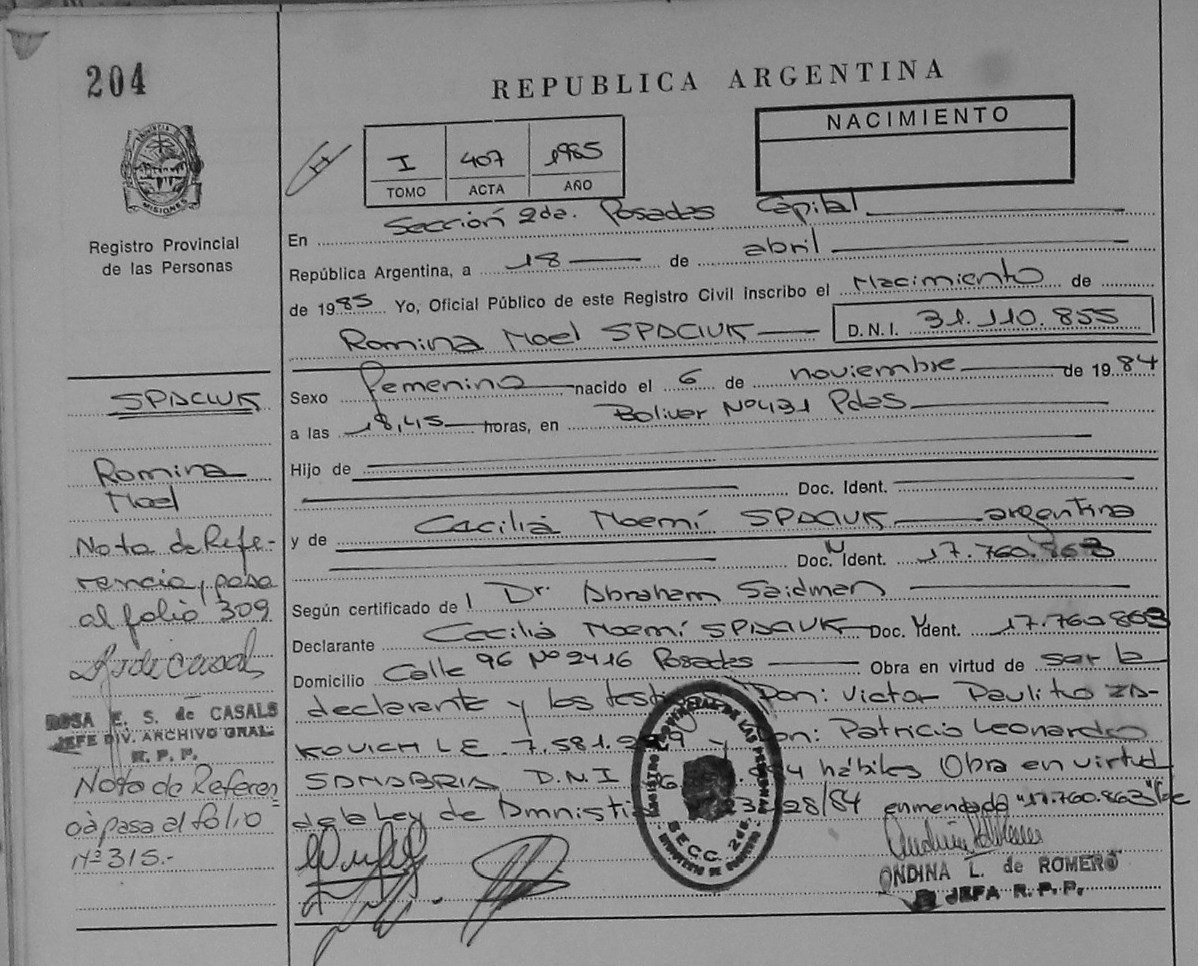 204
REPUBLICA ARGENTINA
NACIMIENTO
I 407 1985
TOMO ACTA AÑO
MISIONES
Registro Provincial
de las Personas
En Sección 2da. Posadas Capital
República Argentina, a 18 de abril
de 1985 Yo, Oficial Público de este Registro Civil inscribo el Nacimiento de
Romina Noel SPACIUK D.N.I. 31.110.855
Sexo femenino nacido el 6 de noviembre de 1984
a las 18,45 horas, en Bolivar Nº431 Pdas
Hijo de
Doc. Ident.
y de Cacilia Noemí SPACIUK argentina
Doc. N Ident. 17.760.863
Según certificado de l Dr. Abraham Saidman
Declarante Cacilia Noemí SPACIUK Doc. N Ident. 17.760.863
Domicilio Calle 96 Nº 2416 Posadas Obra en virtud de ser la
declarante y los Don: Victor Paulino ZA-
KOVICH L E 7.581. y Don: Patricio Leonardo
SANABRIA D.N.I hábiles Obra en virtud
de la Ley de 28/84 enmendado "17.760.863"
SECC. 2da.
ONDINA L. de ROMERO
JEFA R.P.P.
SPACIUK
Romina
Noel
Nota de Refe-
rencia, pasa
al folio 309
ROSA E. S. de CASALS
JEFE DIV. ARCHIVO GRAL.
R.P.P.
Nota de Referen
cia pasa al folio
Nº 315.-